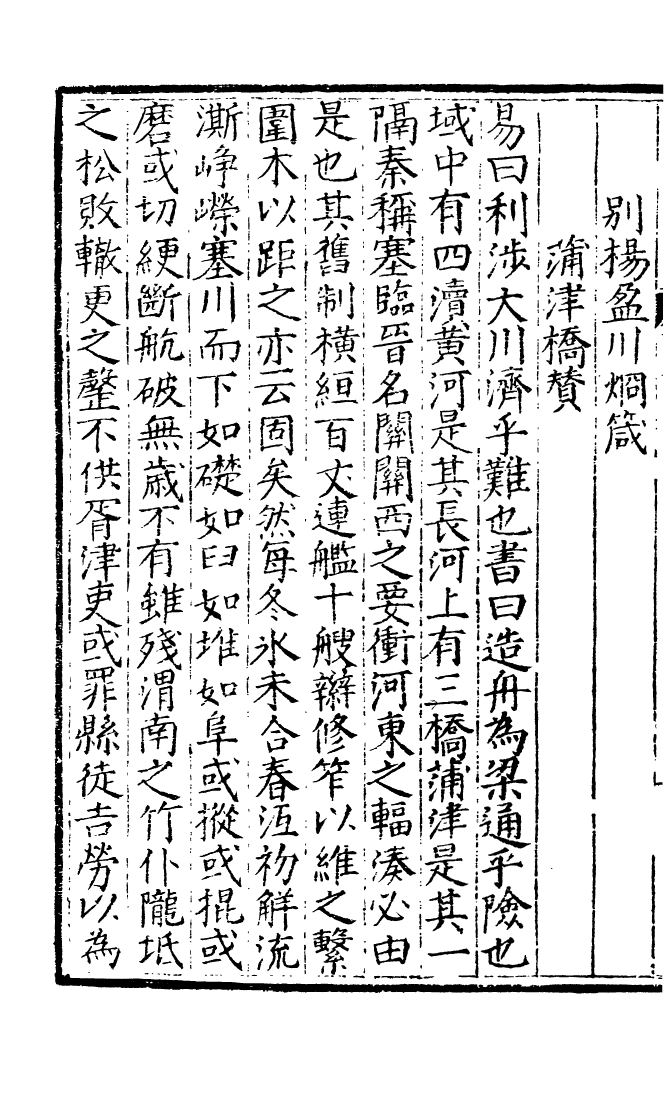 別楊盈川烱箴
蒲津橋賛
易曰利涉大川濟乎難也書曰造舟為梁通乎險也
域中有四瀆黄河是其長河上有三橋蒲津是其一
隔秦稱塞臨晉名關關西之要衝河東之輻湊必由
是也其舊制横絙百丈連艦十艘辮修笮以維之繫
圍木以距之亦云固矣然每冬氷未合春沍初解流
澌崢嶸塞川而下如礎如臼如堆如阜或摐或掍或
磨或切綆斷航破無歳不有雖殘渭南之竹仆隴坻
之松敗轍更之罄不供胥津吏或罪縣徒告勞以為